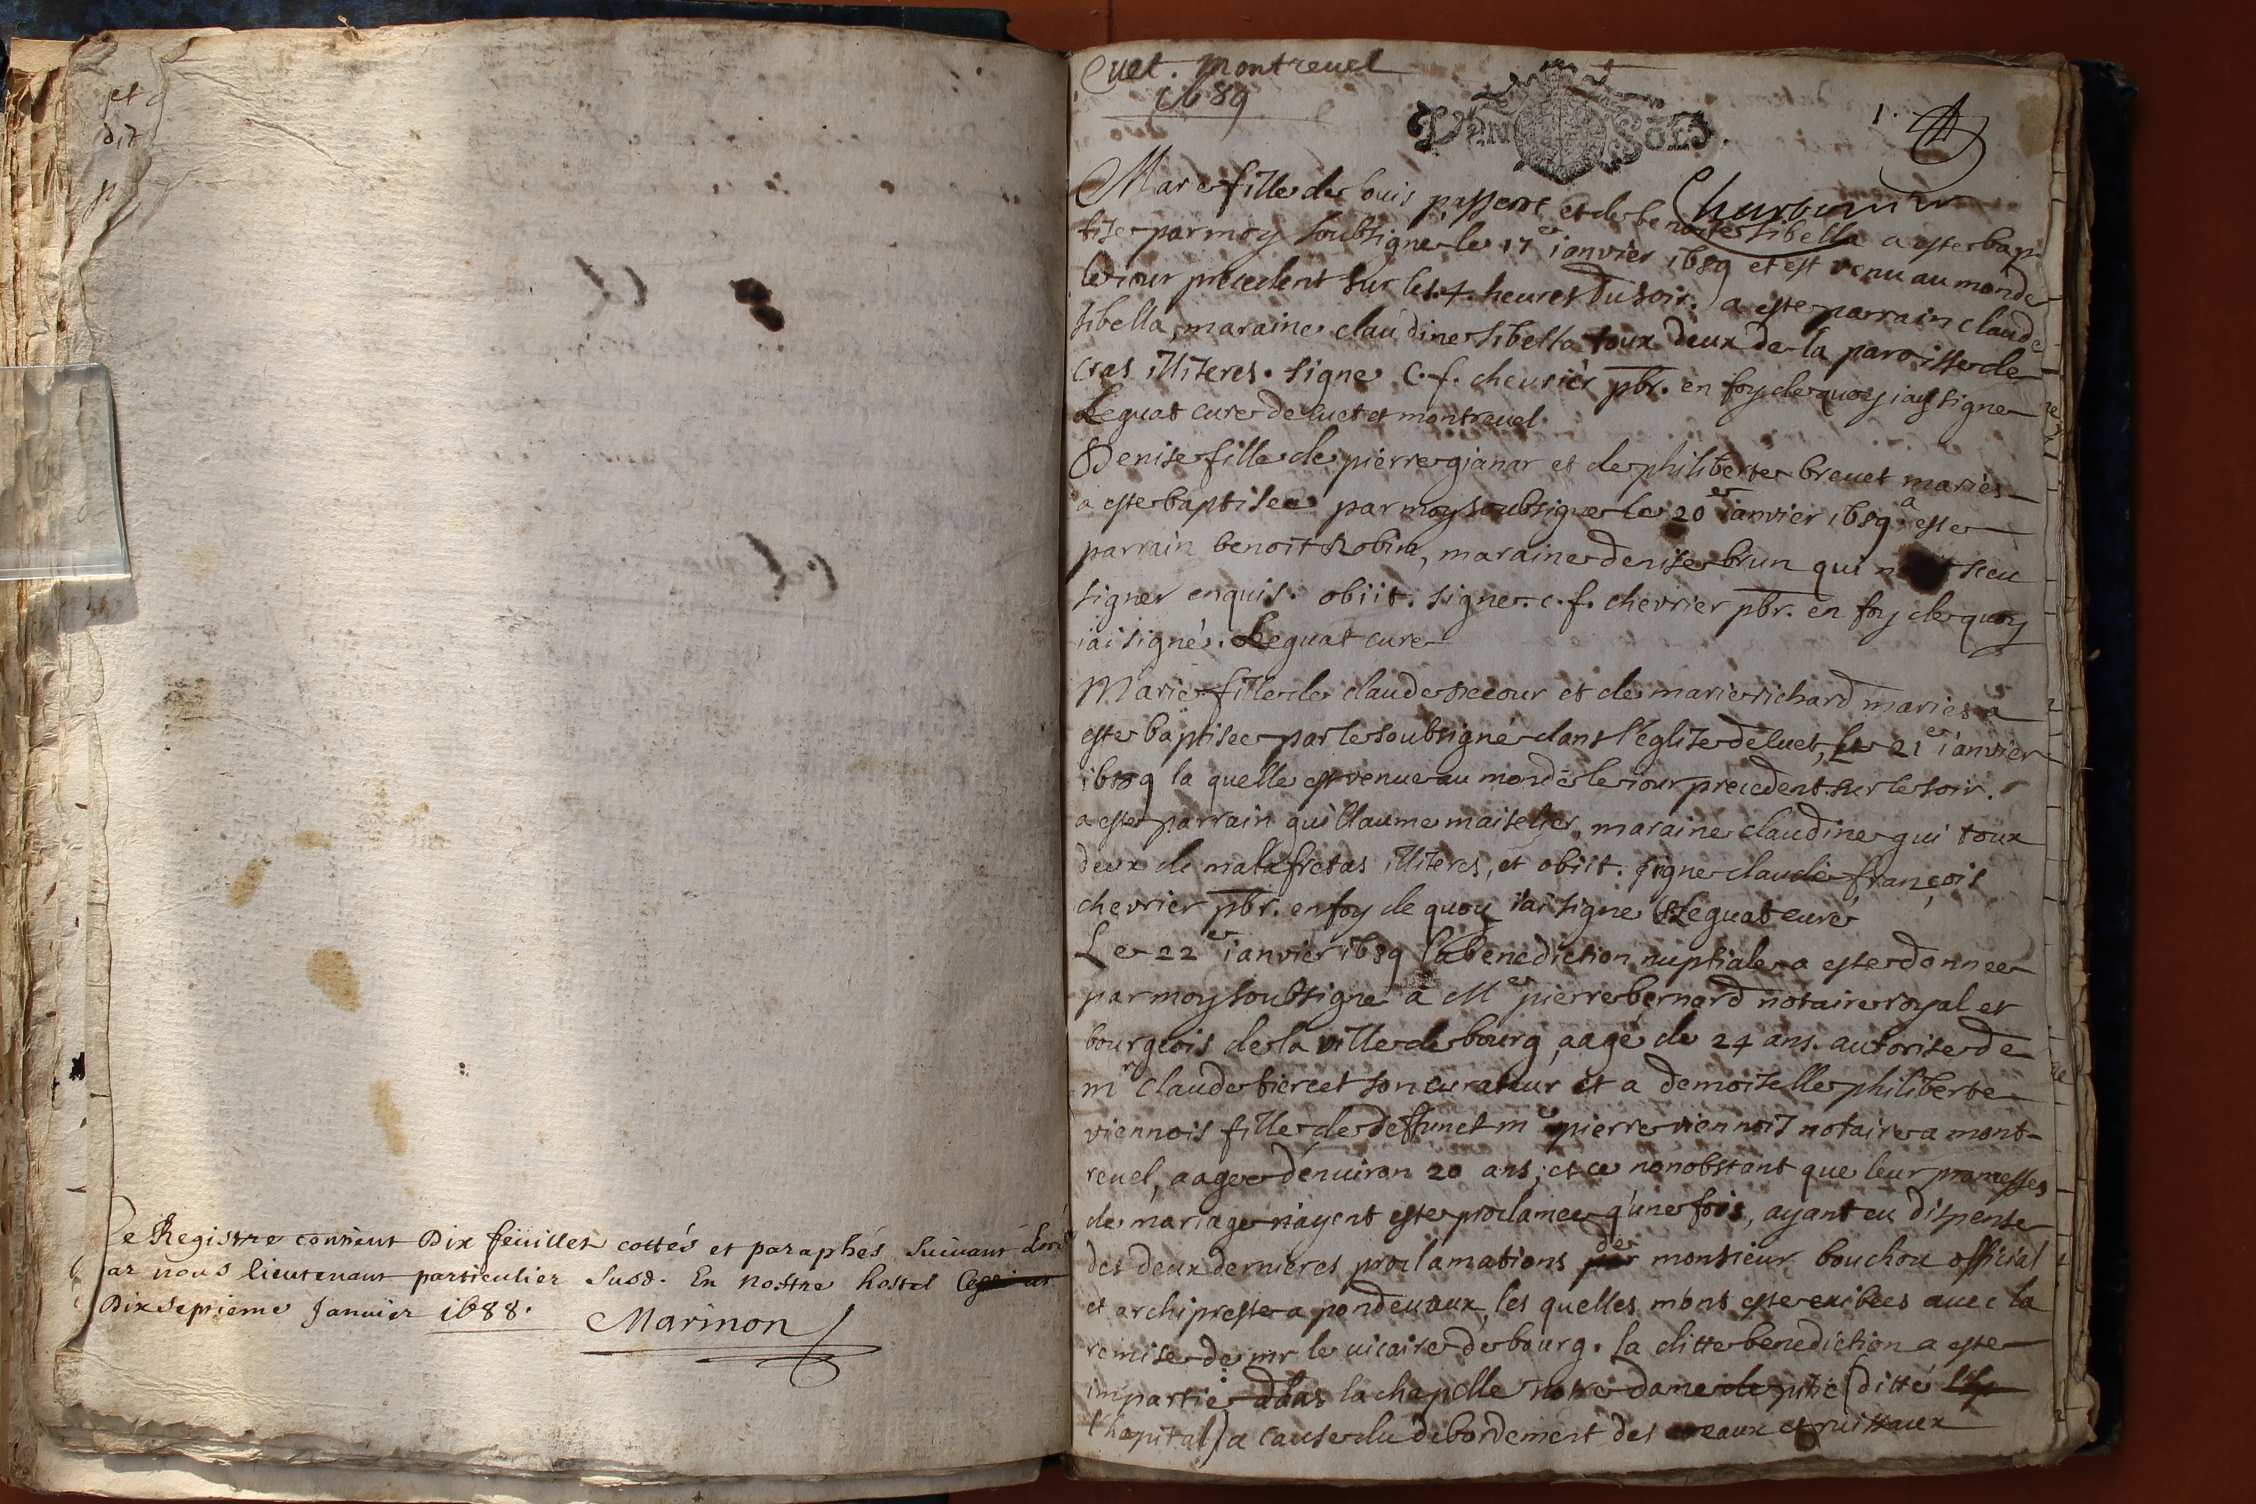 et
dit
Ce Registre contient Dix feuillets cottés et paraphés suivant
ar nous lieutenant particulier susd. En nostre hostel
Dixseptieme Januier 1688.
Marinon
Cuet. Montreuel
1689
VIN SOLS.
1.
Charbonnier
Marie fille de louis passerat et de benoite sibella a este bap-
tise par moy soubsigne le 17e ianvier 1689 et est venu au monde
le iour precedent sur les 4. heures du soir. a este parrain claude
sibella, maraine claudine sibella toux deux de la paroisse de
Cras illiteres. signe C. f. cheurier pbr. en foy de quoy iay signe
Leguat cure de cuet et montreuel.
Denise fille de pierre gianar et de philiberte breuet mariés
a este baptisee par moy soubsigne le 20e ianvier 1689 a este
parrain benoit Robin, maraine denise brun qui sceu
signer enquis. obiit. signe. c. f. chevrier pbr. en foy de quoy
iai signé. Leguat cure
Marie fille de claude recour et de marie richard mariés a
este baptisee par le soubsigné dans l'eglise de cuet, le 21e ianvier
1689 la quelle est venue au monde le iour precedent sur le soir.
a este parrain guillaume maitelier, maraine claudine gui toux
deux de malafretas illiteres, et obiit. signe claude françois
chevrier pbr. en foy de quoy iai signe Leguat curé
Le 22e ianvier 1689 la benediction nuptiale a este donnee
par moy soubsigne a Me pierre bernard notaire royal et
bourgeois de la ville de bourg, aagé de 24 ans. autorise de
mr claude tiercet son curateur et a demoiselle philiberte
viennois fille de deffunct me pierre viennois notaire a mont-
reuel, aagee d'enuiron 20 ans, et ce nonobstant que leur promesses
de mariage n'ayent este proclamee qu'une fois, ayant eu dispense
des deux dernieres proclamations de monsieur bouchou official
et archiprestre a pondeuaux, les quelles m'ont este exibees auec la
remise de mr le vicaire de bourg. la ditte benediction a este
impartie dans la chapelle notre dame de pitie (ditte
l'hopital) a cause du debordement des eaux et ruisseaux